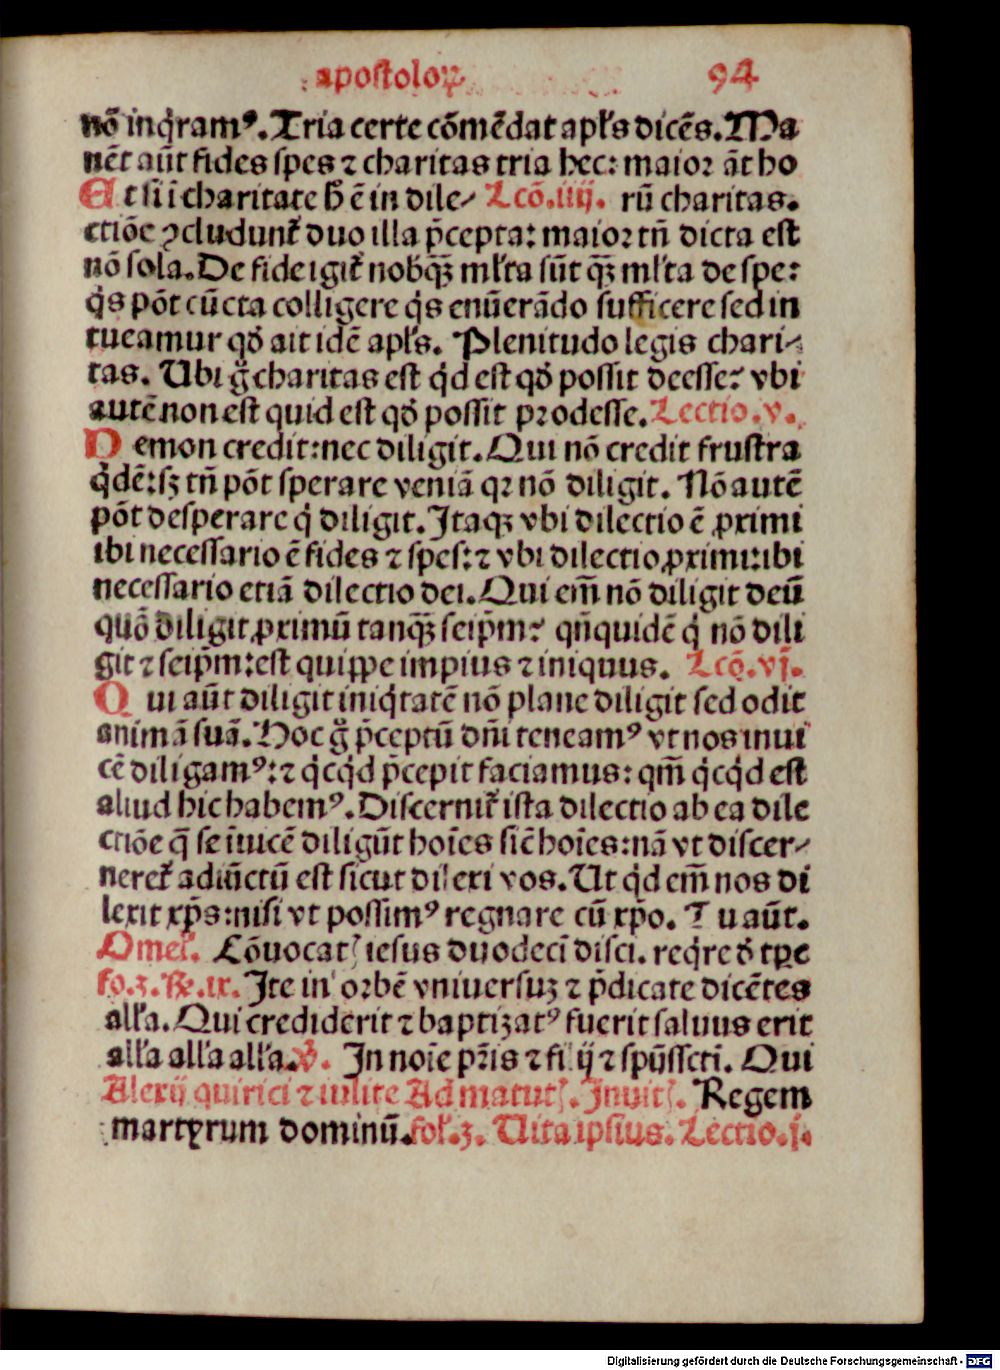 apostoloꝝ 94
nō inqͥramꝰ. Tria certe cōmēdat apl's dicēs. Ma
nēt aūt fides spes ⁊ charitas tria hec: maior āt ho
Et si ī charitate h̄ ē in dile- Lcō. iiij. rū charitas.
ctiōe ꝯcludunt᷑ duo illa p̄cepta: maior tn̄ dicta est
nō sola. De fide igit᷑ nobꝙ̄ ml'ta sūt ꝙ̄ ml'ta de spe:
qͥs pōt cūcta colligere qͥs enūerādo sufficere sed in
tueamur qd̓ ait idē apl's. Plenitudo legis chari-
tas. Ubi gͦ charitas est qͥd est qd̓ possit deesse? vbi
autē non est quid est qd̓ possit prodesse. Lectio. v.
Demon credit: nec diligit. Qui nō credit frustra
qͥdē: sꝫ tn̄ pōt sperare veniā qꝛ nō diligit. Nō autē
pōt desperare qͥ diligit. Itaqꝫ vbi dilectio ē ꝓximi
ibi necessario ē fides ⁊ spes: ⁊ vbi dilectio ꝓximi: ibi
necessario etiā dilectio dei. Qui em̄ nō diligit deū
quō diligit ꝓximū tanꝙ̄ seip̄m? qn̄quidē qͥ nō dili
git ⁊ seip̄m: est quippe impius ⁊ iniquus. Lcō. vj.
Qui aūt diligit iniqͥtatē nō plane diligit sed odit
animā suā. Hoc gͦ p̄ceptū dn̄i teneamꝰ vt nos inui
cē diligamꝰ: ⁊ qͥcqͥd p̄cepit faciamus: qm̄ qͥcqͥd est
aliud hic habemꝰ. Discernit᷑ ista dilectio ab ea dile
ctiōe q̄ se īuicē diligūt hoīes sic̄ hoīes: nā vt discer-
neret᷑ adiūctū est sicut dilexi vos. Ut qͥd em̄ nos di
lexit xp̄s: nisi vt possimꝰ regnare cū xp̄o. Tu aūt.
Omel'. Cōuocat᷒ iesus duodecī disci. reqͥre d̓ tꝑe
fo. 3. ℟. ix. Ite in orbē vniuersuꝫ ⁊ p̄dicate dicētes
all'a. Qui crediderit ⁊ baptizatꝰ fuerit saluus erit
all'a all'a all'a. ℣. In noīe pr̄is ⁊ filij ⁊ spūssct̄i. Qui
Alexij quirici ⁊ iulite Ad matut᷒. Inuit᷒. Regem
martyrum dominū. fol'. 3. Uita ipsius. Lectio. j.
Digitalisierung gefördert durch die Deutsche Forschungsgemeinschaft - DFG